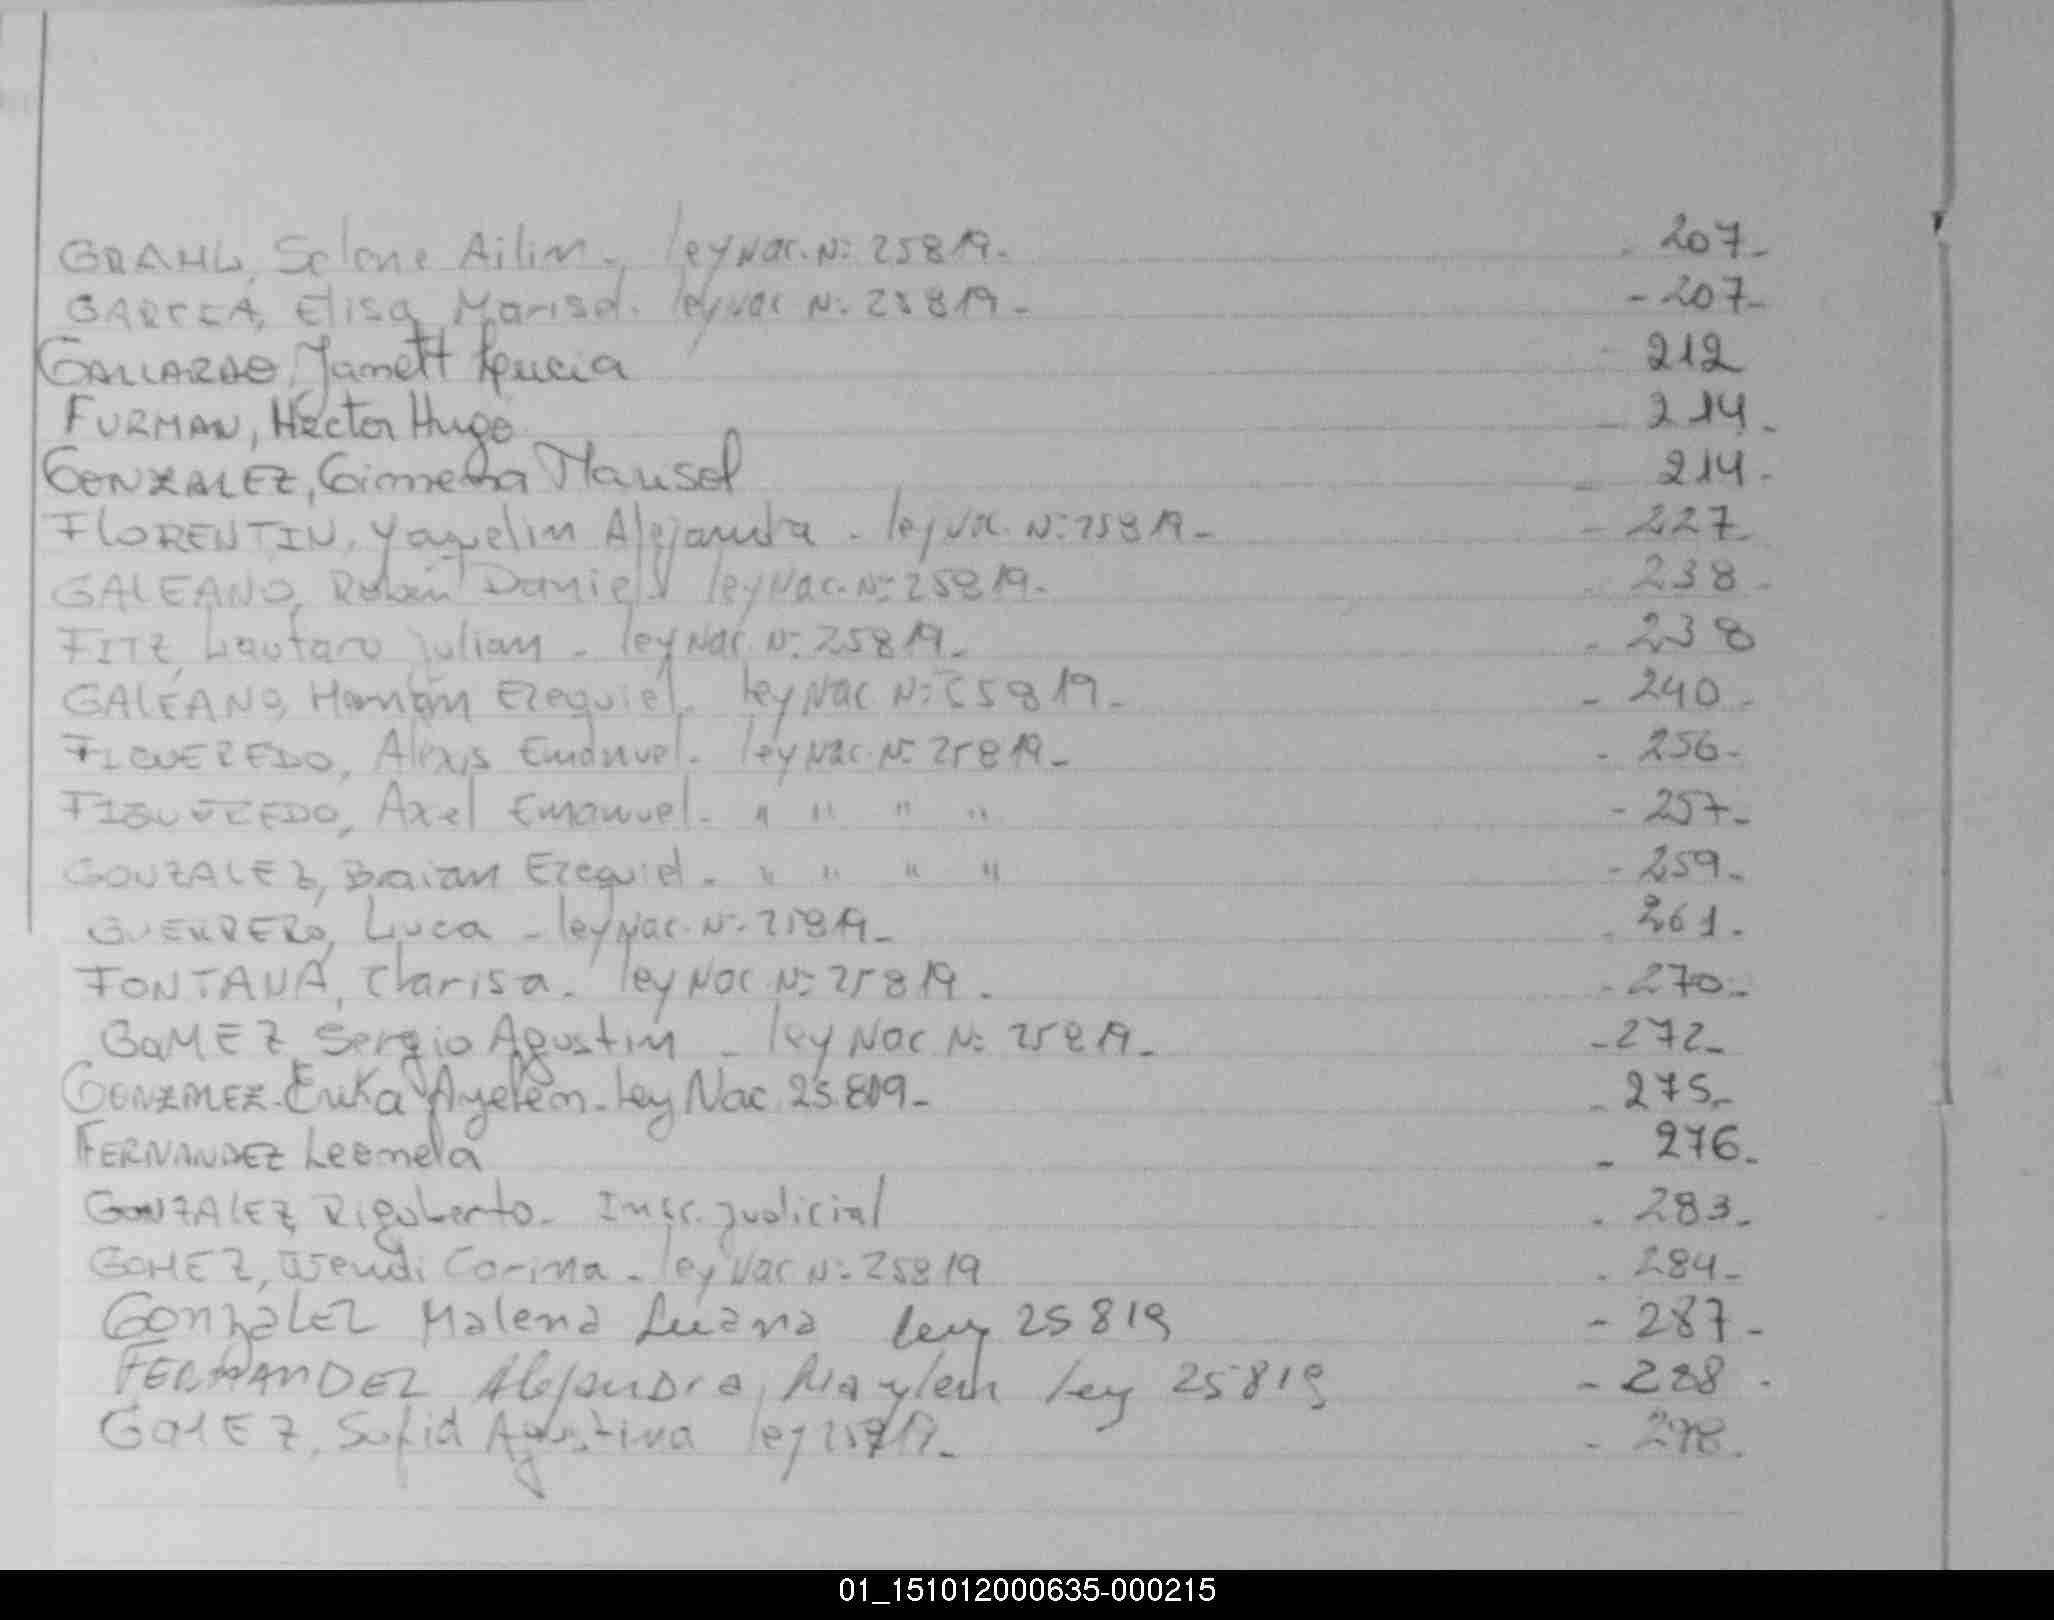 GRAHL, Selene Ailin - ley Nac. Nº 25819 - 207 -
GARCIA, Elisa Marisol. ley Nac Nº 25819 - - 207 -
GALLARDO, Jamett Lucia - 212
FURMAN, Hector Hugo - 214 -
GONZALEZ, Gimena Marisol - 214 -
FLORENTIN, Yaquelin Alejandra - ley Nac. Nº 25819 - - 227
GALEANO, Rubén Daniel ley Nac. Nº 25819 - - 238 -
FITZ, Lautaro Julian - ley Nac. Nº 25819 - - 238
GALEANO, Hernán Ezequiel - ley Nac Nº 25819 - - 240 -
FIGUEREDO, Alexis Emanuel - ley Nac. Nº 25819 - - 256 -
FIGUEREDO, Axel Emanuel - " " " " - 257 -
GONZALEZ, Braian Ezequiel - " " " " - 259 -
GUERRERO, Luca - ley Nac. Nº 25819 - - 261 -
FONTANA, Clarisa - ley Nac Nº 25819 - - 270 -
GOMEZ, Sergio Agustin - ley Nac Nº 25819 - - 272 -
GONZALEZ - Erika Ayelen - Ley Nac 25.819 - - 275 -
FERNANDEZ Leonela - 276 -
GONZALEZ, Rigoberto - Insc. Judicial - 283 -
GOMEZ, Wendi Corina - ley Nac Nº 25819 - 284 -
GONZALEZ Malena Luana Ley 25819 - 287 -
FERNANDEZ Alejandra Maylen Ley 25819 - 288 -
GOMEZ, Sofia Agustina ley 25819 -
01_151012000635-000215